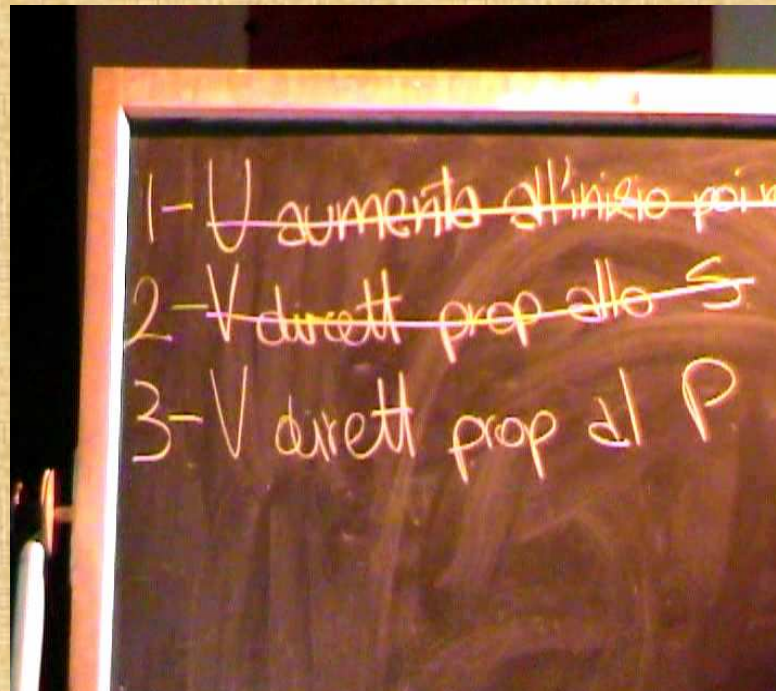 1- V aumenta all'inizio poi
2- V dirett prop allo S
3- V dirett prop al P